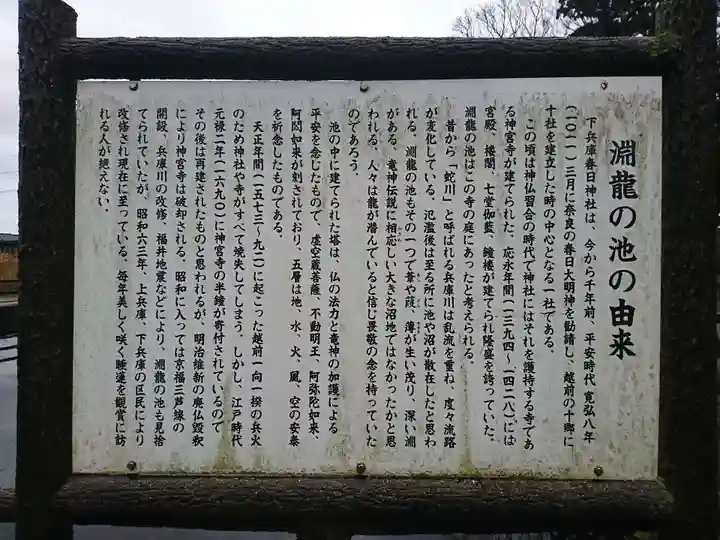 淵龍の池の由来
下兵庫春日神社は、今から千年前、平安時代 寛弘八年
(一〇一一)三月に奈良の春日大明神を勧請し、越前の十郷に
十社を建立した時の中心となる一社である。
この頃は神仏習合の時代で神社にはそれを護持する寺であ
る神宮寺が建てられた。応永年間(一三九四〜一四二八)には
宮殿、楼閣、七堂伽藍、鐘楼が建てられ隆盛を誇っていた。
淵龍の池はこの寺の庭にあったと考えられる。
昔から「蛇川」と呼ばれる兵庫川は乱流を重ね、度々流路
が変化している。氾濫後は至る所に池や沼が散在したと思わ
れる。淵龍の池もその一つで葦や葭、薄が生い茂り、深い淵
がある、竜神伝説に相応しい大きな沼地ではなかったかと思
われる。人々は龍が潜んでいると信じ畏敬の念を持っていた
のであろう。
池の中に建てられた塔は、仏の法力と竜神の加護による
平安を念じたもので、虚空蔵菩薩、不動明王、阿弥陀如来、
阿閦如来が刻されており、五層は地、水、火、風、空の安泰
を祈念したものである。
天正年間(一五七三〜九二)に起こった越前一向一揆の兵火
のため神社や寺がすべて焼失してしまう。しかし、江戸時代
元禄二年(一六九〇)に神宮寺の半鐘が寄付されているので
その後は再建されたものと思われるが、明治維新の廃仏毀釈
により神宮寺は破却される。昭和に入っては京福三芦線の
開設、兵庫川の改修、福井地震などにより、淵龍の池も見捨
てられていたが、昭和六三年、上兵庫、下兵庫の区民により
改修され現在に至っている。毎年美しく咲く睡蓮を観賞に訪
れる人が絶えない。